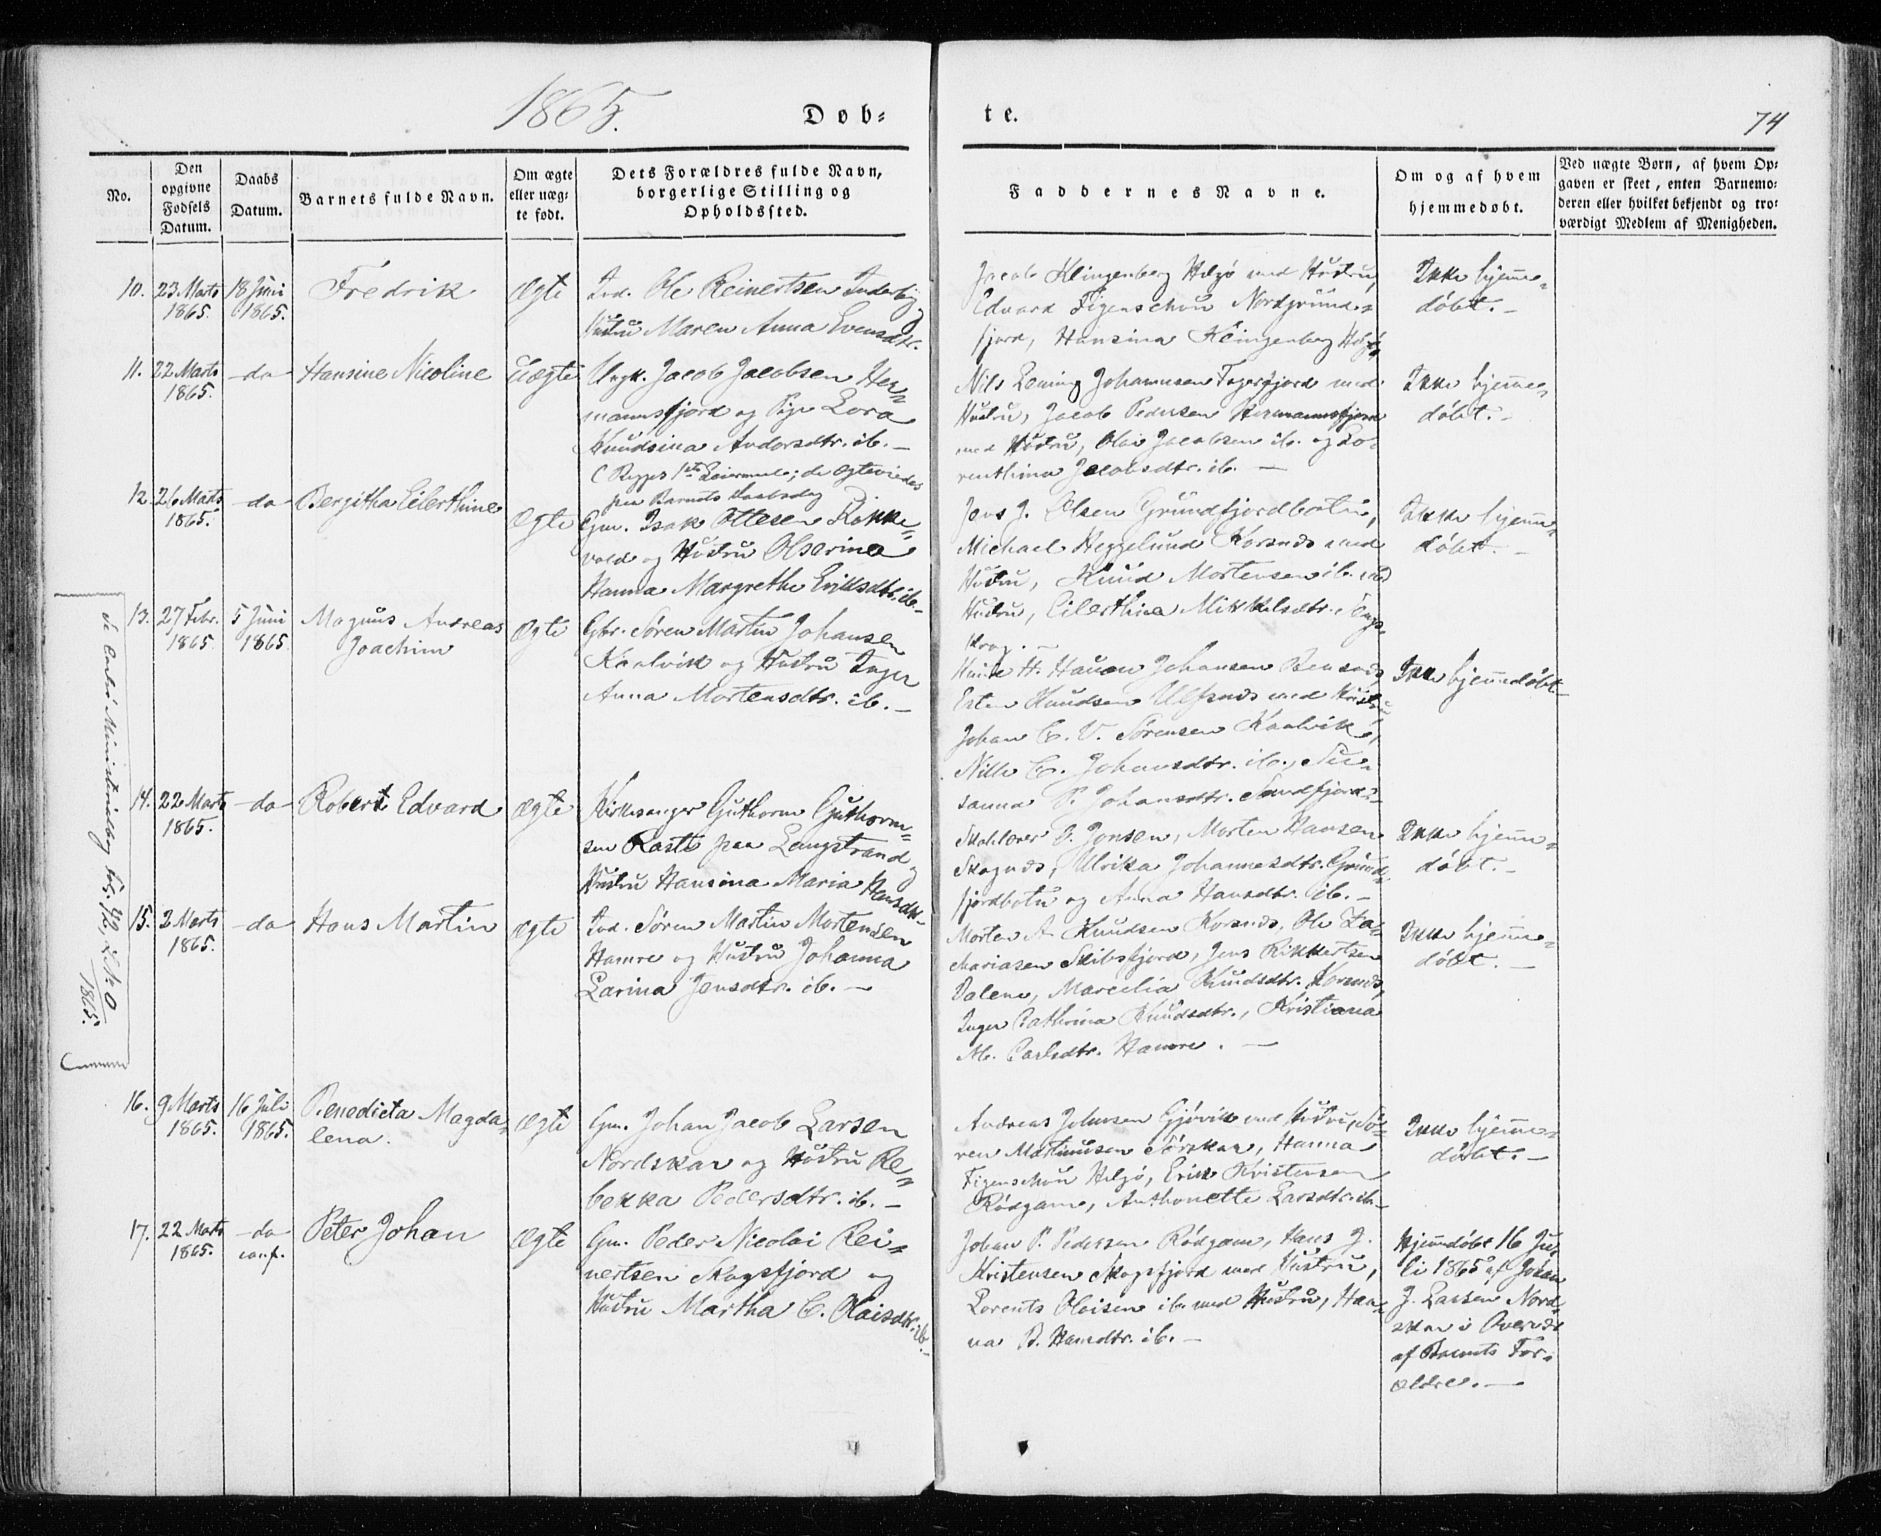 1865.
Døb-
te.
74
No.
Den opgivne Fødsels Datum.
Daabs Datum.
Barnets fulde Navn.
Om ægte eller uægte født.
Dets Forældres fulde Navn, borgerlige Stilling og Opholdssted.
Faddernes Navne.
Om og af hvem hjemmedøbt.
Ved uægte Børn, af hvem Opgaven er skeet, enten Barnemoderen eller hvilket bekjendt og troværdigt Medlem af Menigheden.
10.
23 Marts
1865.
18 Juni
1865.
Fredrik
Ægte
Ind. Ole Reinertsen Inderby og
Hustru Maren Anna Evensdtr.
Jacob Klingenberg Helgø med Hustru,
Edvard Figenschou Nordgrund-
fjord, Hansina Klingenberg Helgø
Ikke hjemme-
døbt.-
11.
22 Marts
1865.
-do-
Hansine Nicoline
Uægte
Ungk. Jacob Jacobsen Her-
mannsfjord og Pige Lora
Knudsina Andersdtr. ib.-
(Begges 1ste Leiermaal; de ægteviedes
paa Barnets Daabsdag
Nils Johannesen Fagerfjord med
Hustru, Jacob Pedersen Hermannsfjord
med Hustru, Olai Jacobsen ib. og Lo-
renthina Jacobsdtr. ib.-
Ikke hjemme-
døbt.-
12.
26 Marts
1865.
-do-
Bergitha Eilerthine
Ægte
Gm. Isak Ottesen Kokke-
vold og Hustru Olserina
Hanna Margrethe Eriksdtr. ib.-
Jens J. Olsen Grundfjordbotn,
Michael Heggelund Korsnæs med
Hustru, Knud Mortensen ib. med
Hustru, Eilerthina Mikkelsdtr.
krog.-
Ikke hjemme-
døbt.-
13.
27 Febr.
1865
5 Juni
1865
Magnus Andreas
Joachim
Ægte
Gbr. Søren Martin Johansen
Kaalvik og Hustru Inger
Anna Mortensdtr. ib.-
H. Hauan Johansen
Esten Knudsen Ulfsnæs med Hustru
Johan C. V. Sørensen Kaalvik,
Nille C. Johansdtr. ib., Su-
sanna P. Johansdtr. Sandfjord.-
Ikke hjemmedøbt.-
14.
22 Marts
1865.
-do-
Robert Edvard
Ægte
Kirkesanger Guthorm Guthorm-
sen Raste paa Langstrand og
Hustru Hansina Maria Hansdtr.
Skolelærer J. Jonsen, Morten Hansen
Skognæs, Ulrika Johannesdtr. Grund-
fjordbotn og Anna Hansdtr. ib.-
Ikke hjemme-
døbt.-
15.
2 Marts
1865.
-do-
Hans Martin
Ægte
Ind. Søren Martin Mortensen
Hamre og Hustru Johanna
Larina Jensdtr. ib.-
Morten A. Knudsen Korsnæs, Ole Za-
chariasen Skibsfjord, Jens Rikkertsen
Dalene, Marcelia Knudsdtr. Korsnæs,
Inger Cathrina Knudsdtr., Kristiana
M. Carlsdtr. Hamre.-
Ikke hjemme-
døbt.-
Se Carlsø Ministerialbog fol. 96, L. N. 0
1865.
16.
9 Marts
1865.
16 Juli
1865.
Benedicta Magda-
lena.
Ægte
Gm. Johan Jacob Larsen
Nordskar og Hustru Re-
bekka Pedersdtr. ib.-
Andreas Johnsen Gjøvik med Hustru, Sø-
ren Mathiusen Sørskar, Hanna
Figenschou Helgø, Erik Kristensen
Rødgame, Anthonette Larsdtr. ib.-
Ikke hjemme-
døbt.-
17.
22 Marts
1865.
-do-
conf.
Peter Johan
Ægte
Gm. Peder Nicolai Rei-
nertsen Skogsfjord og
Hustru Martha C. Olaisdtr. ib.-
Johan P. Pedersen Rødgam, Hans J.
Kristensen Skogsfjord med Hustru,
Lorents Olaisen ib. med Hustru, Han-
na B. Hansdtr. ib.-
Hjemmedøbt 16 Ju-
li 1865 af Johan
J. Larsen Nord-
skar i Overvær
af Barnets For-
ældre.-